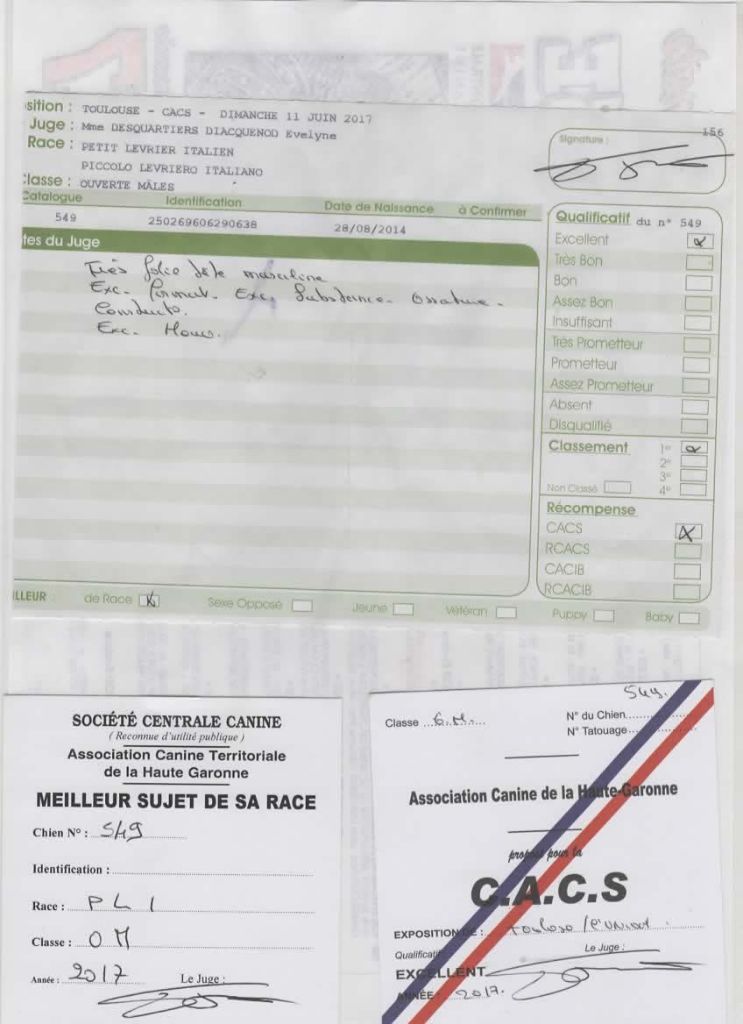 sition : TOULOUSE - CACS - DIMANCHE 11 JUIN 2017
Juge : Mme DESQUARTIERS DIACQUENOD Evelyne
Race : PETIT LEVRIER ITALIEN
PICCOLO LEVRIERO ITALIANO
Classe : OUVERTE MÂLES
156
Signature :
Catalogue Identification Date de Naissance à Confirmer
549 250269606290638 28/08/2014
tes du Juge
Très jolie tête masculine
Exc. format. Exc. Substance. Ossature.
Conduit.
Exc. Mouv.
Qualificatif du n° 549
Excellent
Très Bon
Bon
Assez Bon
Insuffisant
Très Prometteur
Prometteur
Assez Prometteur
Absent
Disqualifié
Classement 1er
2e
3e
Non Classé 4e
Récompense
CACS X
RCACS
CACIB
RCACIB
ILLEUR de Race X Sexe Opposé Jeune Vétéran Puppy Baby
SOCIÉTÉ CENTRALE CANINE
( Reconnue d'utilité publique )
Association Canine Territoriale
de la Haute Garonne
MEILLEUR SUJET DE SA RACE
Chien N° : 549
Identification :
Race : PLI
Classe : OM
Année : 2017 Le Juge :
549.
Classe N° du Chien
N° Tatouage
Association Canine de la Haute-Garonne
proposé pour la
C.A.C.S
EXPOSITION DE : Toulouse /
Qualificatif Le Juge :
EXCELLENT
ANNÉE : 2017.